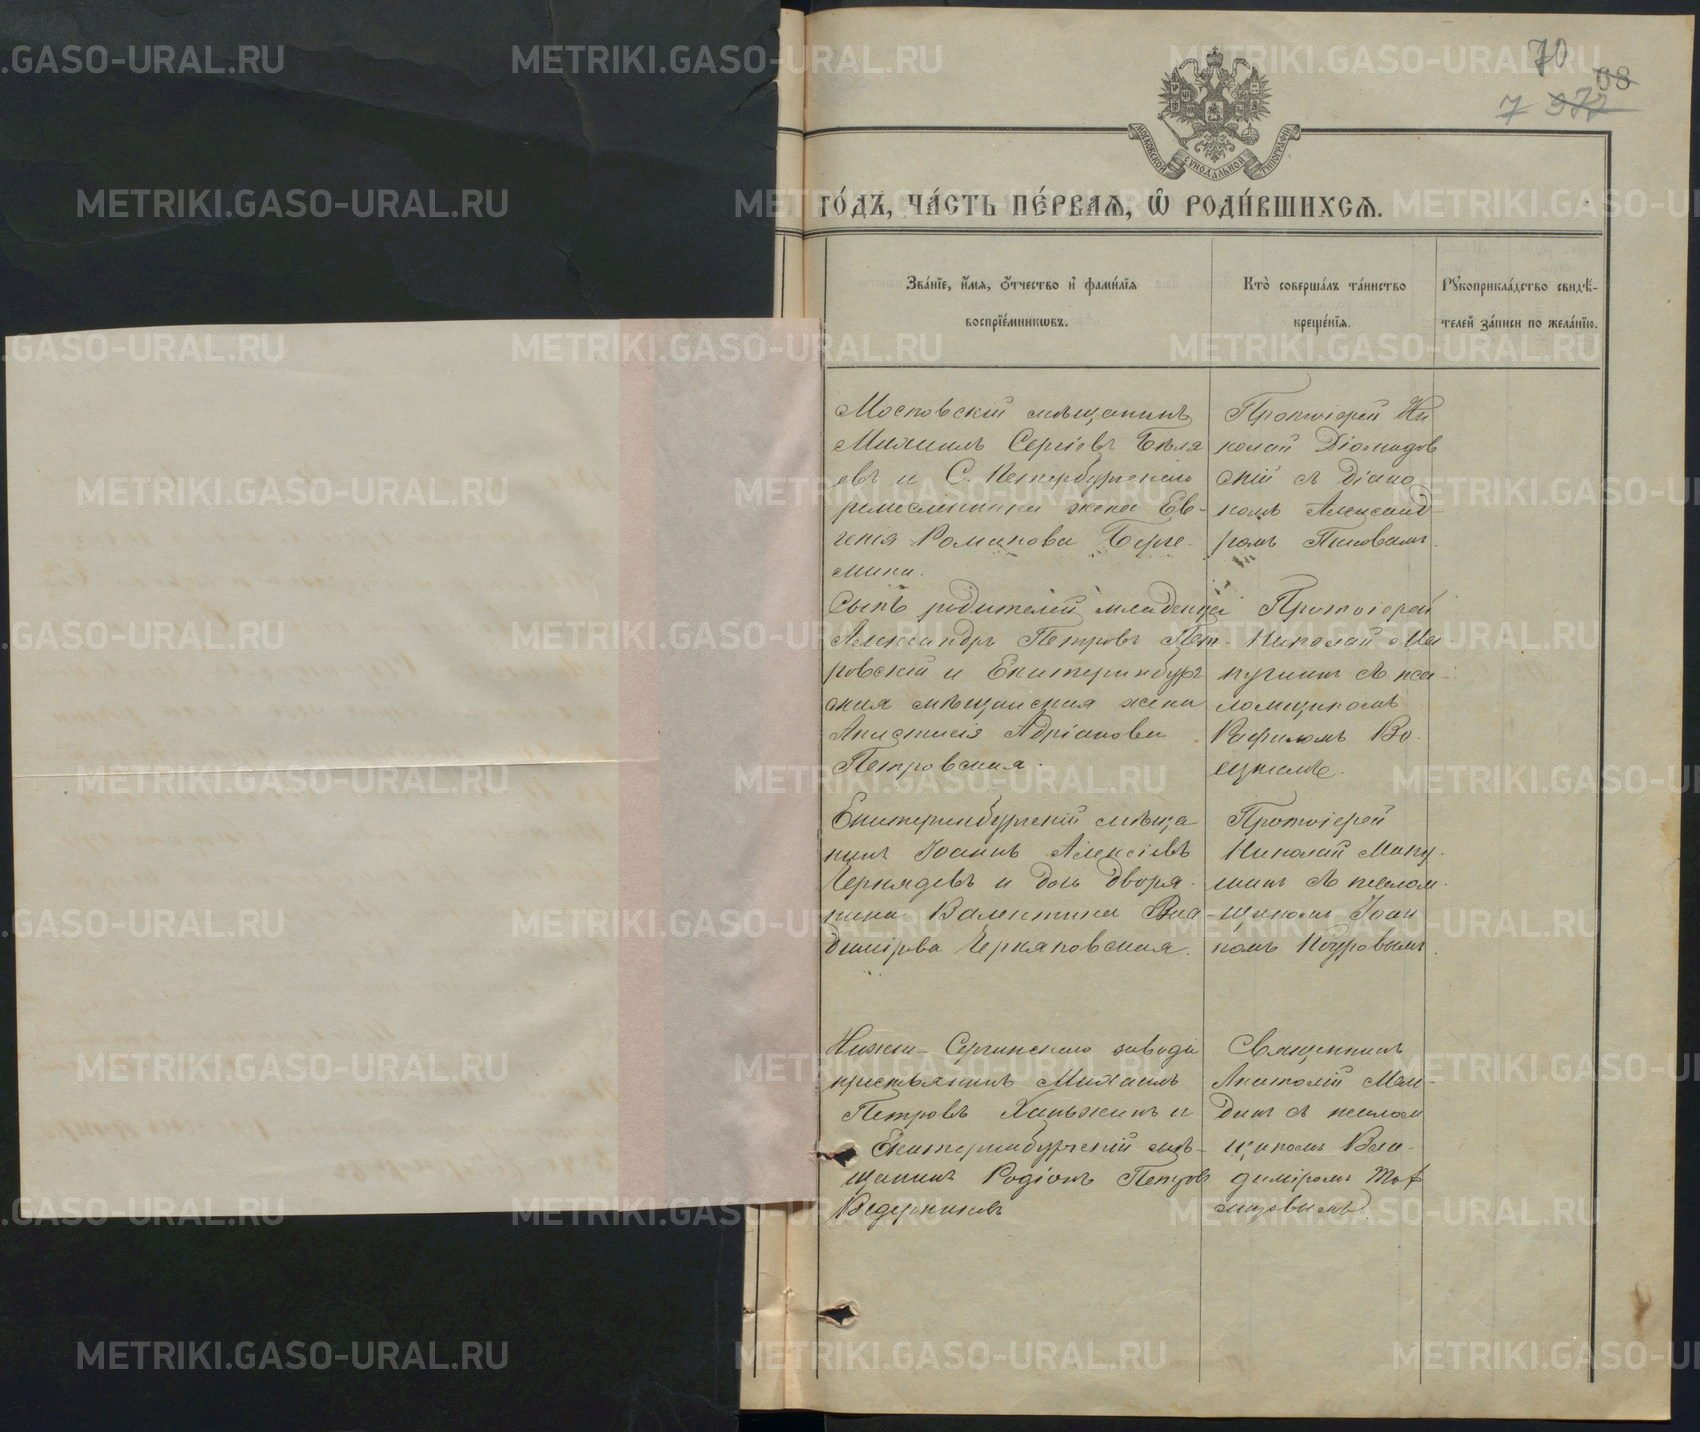 70
7
МОСКОВСКОЙ СѴНОДАЛЬНОЙ ТИПОГРАФІИ
ГО́ДЪ, ЧА́СТЬ ПЕ́РВАЯ, Ѿ РОДИ́ВШИХСѦ.
Зва́нїе, и́мя, ѻ҆́тчество и҆ фами́лїя
воспрїе́мникѡвъ.
Кто̀ соверша́лъ та́инство
креще́нїя.
Рꙋкоприкла́дство свидѣ́-
телей за́писи по жела́нїю.
Московскій мѣщанинъ
Михаилъ Сергіевъ Бѣля
евъ и С. Петербургскаго
ремесленника жена Ев-
генія Романова Берге
мина.
Протоіерей Ни
колай Діомидов
скій съ Діако
номъ Александ-
ромъ Поповымъ.
Сынъ родителей младенца
Александръ Петровъ Пет-
ровскій и Екатеринбург
ская мѣщанская жена
Анастасія Адріанова
Петровская.
Протоіерей
Николай Ма-
кушинъ съ пса-
ломщикомъ
Екатеринбургскій мѣща
нинъ Іоаннъ Алексіевъ
Чернядевъ и дочь дворя-
нина Валентина Вла-
димірова Черняковская.
Протоіерей
Николай Маку-
шинъ съ псалом-
щикомъ Іоан
номъ
Нижне-Сергинскаго завода
крестьянинъ Михаилъ
Петровъ Ханжинъ и
Екатеринбургскій мѣ-
щанинъ Родіонъ Петровъ
Ведерниковъ
Священникъ
Анатолій Ман-
динъ съ псалом
щикомъ Вла-
диміромъ
METRIKI.GASO-URAL.RU